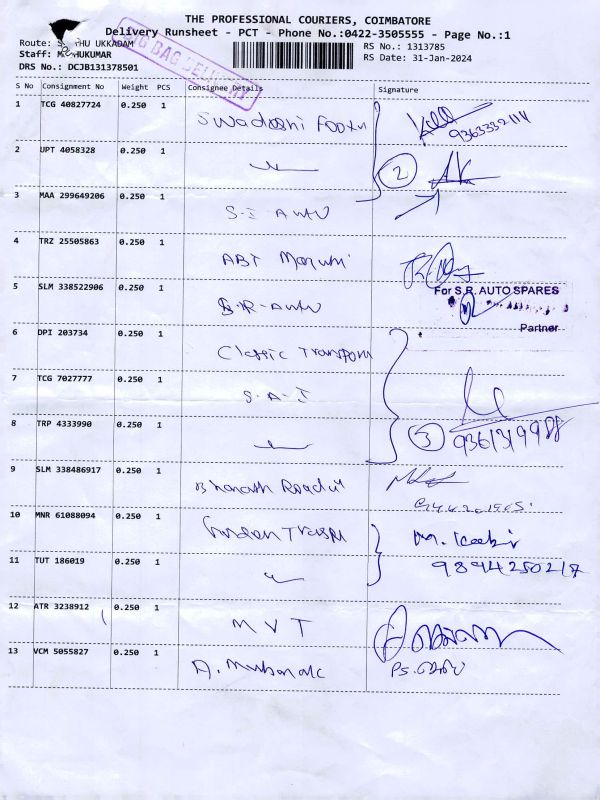 THE PROFESSIONAL COURIERS, COIMBATORE
Delivery Runsheet - PCT - Phone No.:0422-3505555 - Page No.:1
Route: UKKADAM
RS No.: 1313785
Staff:
RS Date: 31-Jan-2024
DRS No.: DCJB131378501
BIG BAG DELIVERY
S No Consignment No Weight PCS Consignee Details Signature
1 TCG 40827724 0.250 1
9363332114
2 UPT 4058328 0.250 1 2
3 MAA 299649206 0.250 1 S-I Auto
4 TRZ 25505863 0.250 1 ABT Maruthi
5 SLM 338522906 0.250 1 S-R-Auto
For S.R. AUTO SPARES
Partner
6 DPI 203734 0.250 1 Classic Transport
7 TCG 7027777 0.250 1 S-A-I
8 TRP 4333990 0.250 1 3
9 SLM 338486917 0.250 1 Bharath
10 MNR 61088094 0.250 1
11 TUT 186019 0.250 1 9894250217
12 ATR 3238912 0.250 1 MVT
13 VCM 5055827 0.250 1 A. Mubarak